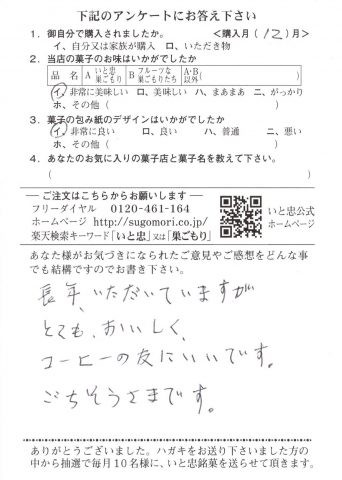 下記のアンケートにお答え下さい
1. 御自分で購入されましたか。 <購入月(12)月>
イ、自分又は家族が購入 ロ、いただき物
2. 当店の菓子のお味はいかがでしたか
品 名 A いと忠 巣ごもり B フルーツな 巣ごもりたち A·B 以外 ( )
イ、非常に美味しい ロ、美味しい ハ、まあまあ ニ、がっかり
ホ、その他( )
3. 菓子の包み紙のデザインはいかがでしたか
イ、非常に良い ロ、良い ハ、普通 ニ、悪い
ホ、その他( )
4. あなたのお気に入りの菓子店と菓子名を教えて下さい。
( )
ご注文はこちらからお願いします
フリーダイヤル 0120-461-164
ホームページ http://sugomori.co.jp/
楽天検索キーワード「いと忠」又は「巣ごもり」
いと忠公式
ホームページ
あなた様がお気づきになられたご意見やご感想をどんな事
でも結構ですのでお書き下さい。
長年、いただいていますが
とても、おいしく、
コーヒーの友にいいです。
ごちそうさまです。
ありがとうございました。ハガキをお送り下さいました方の
中から抽選で毎月10名様に、いと忠銘菓を送らせて頂きます。